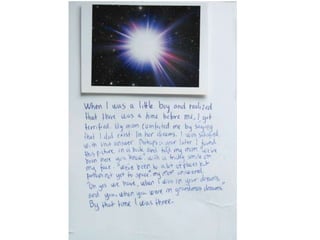 When I was a little boy and realized
that there was a time before me, I got
terrified. My mom comforted me by saying
that I did exist in her dreams. I was satisfied
with that answer. Perhaps a year later I found
this picture in a book, and told my mom "we've
been here you know" with a trustly smile on
my face. "We've been to a lot of places but
perhaps not yet to space" my mom answered.
"Oh yes we have, when I was in your dreams,
and you, when you were in grandma's dreams."
By that time I was three.